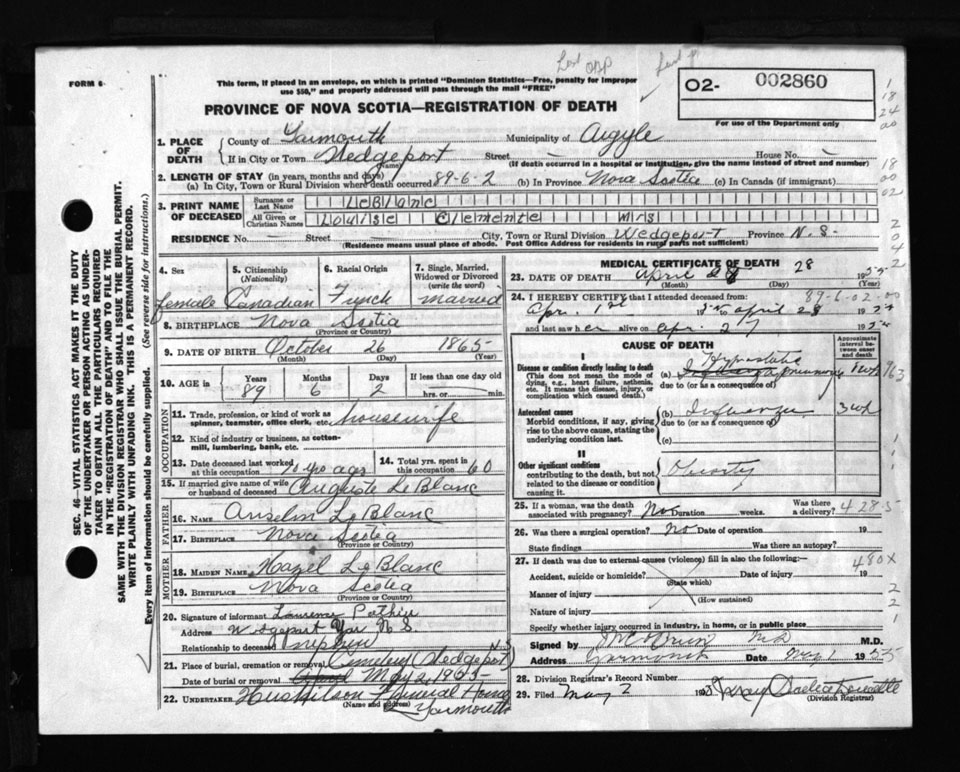 Last
FORM 6
This form, if placed in an envelope, on which is printed "Dominion Statistics—Free, penalty for improper
use $50," and properly addressed will pass through the mail "FREE"
O2- 002860
For use of the Department only
PROVINCE OF NOVA SCOTIA—REGISTRATION OF DEATH
1. PLACE OF DEATH
County of Yarmouth Municipality of Argyle
If in City or Town Wedgeport Street — House No. —
(Name)
(If death occurred in a hospital or institution, give the name instead of street and number)
2. LENGTH OF STAY (in years, months and days)
(a) In City, Town or Rural Division where death occurred 89-6-2 (b) In Province Nova Scotia (c) In Canada (if immigrant)
3. PRINT NAME OF DECEASED
Surname or Last Name LeBlanc
All Given or Christian Names Louise Clemente Mrs
RESIDENCE No. — Street — City, Town or Rural Division Wedgeport Province N.S.
(Residence means usual place of abode. Post Office Address for residents in rural parts not sufficient)
4. Sex female
5. Citizenship (Nationality) Canadian
6. Racial Origin French
7. Single, Married, Widowed or Divorced (write the word) married
8. BIRTHPLACE Nova Scotia
(Province or Country)
9. DATE OF BIRTH October 26 1865
(Month) (Day) (Year)
10. AGE in Years 89 Months 6 Days 2 If less than one day old
hrs. or min.
OCCUPATION
11. Trade, profession, or kind of work as spinner, teamster, office clerk, etc. housewife
12. Kind of industry or business, as cotton-mill, lumbering, bank, etc.
13. Date deceased last worked at this occupation 10 yrs ago
14. Total yrs. spent in this occupation 60
15. If married give name of wife or husband of deceased Auguste LeBlanc
FATHER
16. NAME Anselm LeBlanc
17. BIRTHPLACE Nova Scotia
(Province or Country)
MOTHER
18. MAIDEN NAME Hazel LeBlanc
19. BIRTHPLACE Nova Scotia
(Province or Country)
20. Signature of informant
Address Yar N.S.
Relationship to deceased nephew
21. Place of burial, cremation or removal Cemetery Wedgeport N.S.
Date of burial or removal May 2, 1955
22. UNDERTAKER Funeral Home
(Name and Address) Yarmouth
MEDICAL CERTIFICATE OF DEATH
23. DATE OF DEATH April 28 1955
(Month) (Day)
24. I HEREBY CERTIFY that I attended deceased from: 89-6-02-00
Apr. 1st 1955 to April 28 1955
and last saw her alive on Apr. 27 1955
CAUSE OF DEATH
Approximate interval between onset and death
I
Disease or condition directly leading to death
(This does not mean the mode of dying, e.g., heart failure, asthenia, etc. It means the disease, injury, or complication which caused death.)
(a) Hypostatic pneumonia 1 wk 963
due to (or as a consequence of)
Antecedent causes
Morbid conditions, if any, giving rise to the above cause, stating the underlying condition last.
(b) Influenza 3 wk
due to (or as a consequence of)
(c)
II
Other significant conditions
contributing to the death, but not related to the disease or condition causing it.
25. If a woman, was the death associated with pregnancy? No Duration weeks. Was there a delivery? 4285
26. Was there a surgical operation? No Date of operation 19
State findings Was there an autopsy?
27. If death was due to external causes (violence) fill in also the following:— 480X
Accident, suicide or homicide? Date of injury 19
(State which)
Manner of injury
(How sustained)
Nature of injury
Specify whether injury occurred in industry, in home, or in public place
Signed by MD M.D.
Address Yarmouth Date May 1 1955
28. Division Registrar's Record Number
29. Filed May 2 1955
(Division Registrar)
SEC. 46—VITAL STATISTICS ACT MAKES IT THE DUTY
OF THE UNDERTAKER OR PERSON ACTING AS UNDER-
TAKER TO OBTAIN ALL THE PARTICULARS REQUIRED
IN THE "REGISTRATION OF DEATH" AND TO FILE THE
SAME WITH THE DIVISION REGISTRAR WHO SHALL ISSUE THE BURIAL PERMIT.
WRITE PLAINLY WITH UNFADING INK. THIS IS A PERMANENT RECORD.
Every item of information should be carefully supplied. (See reverse side for instructions.)